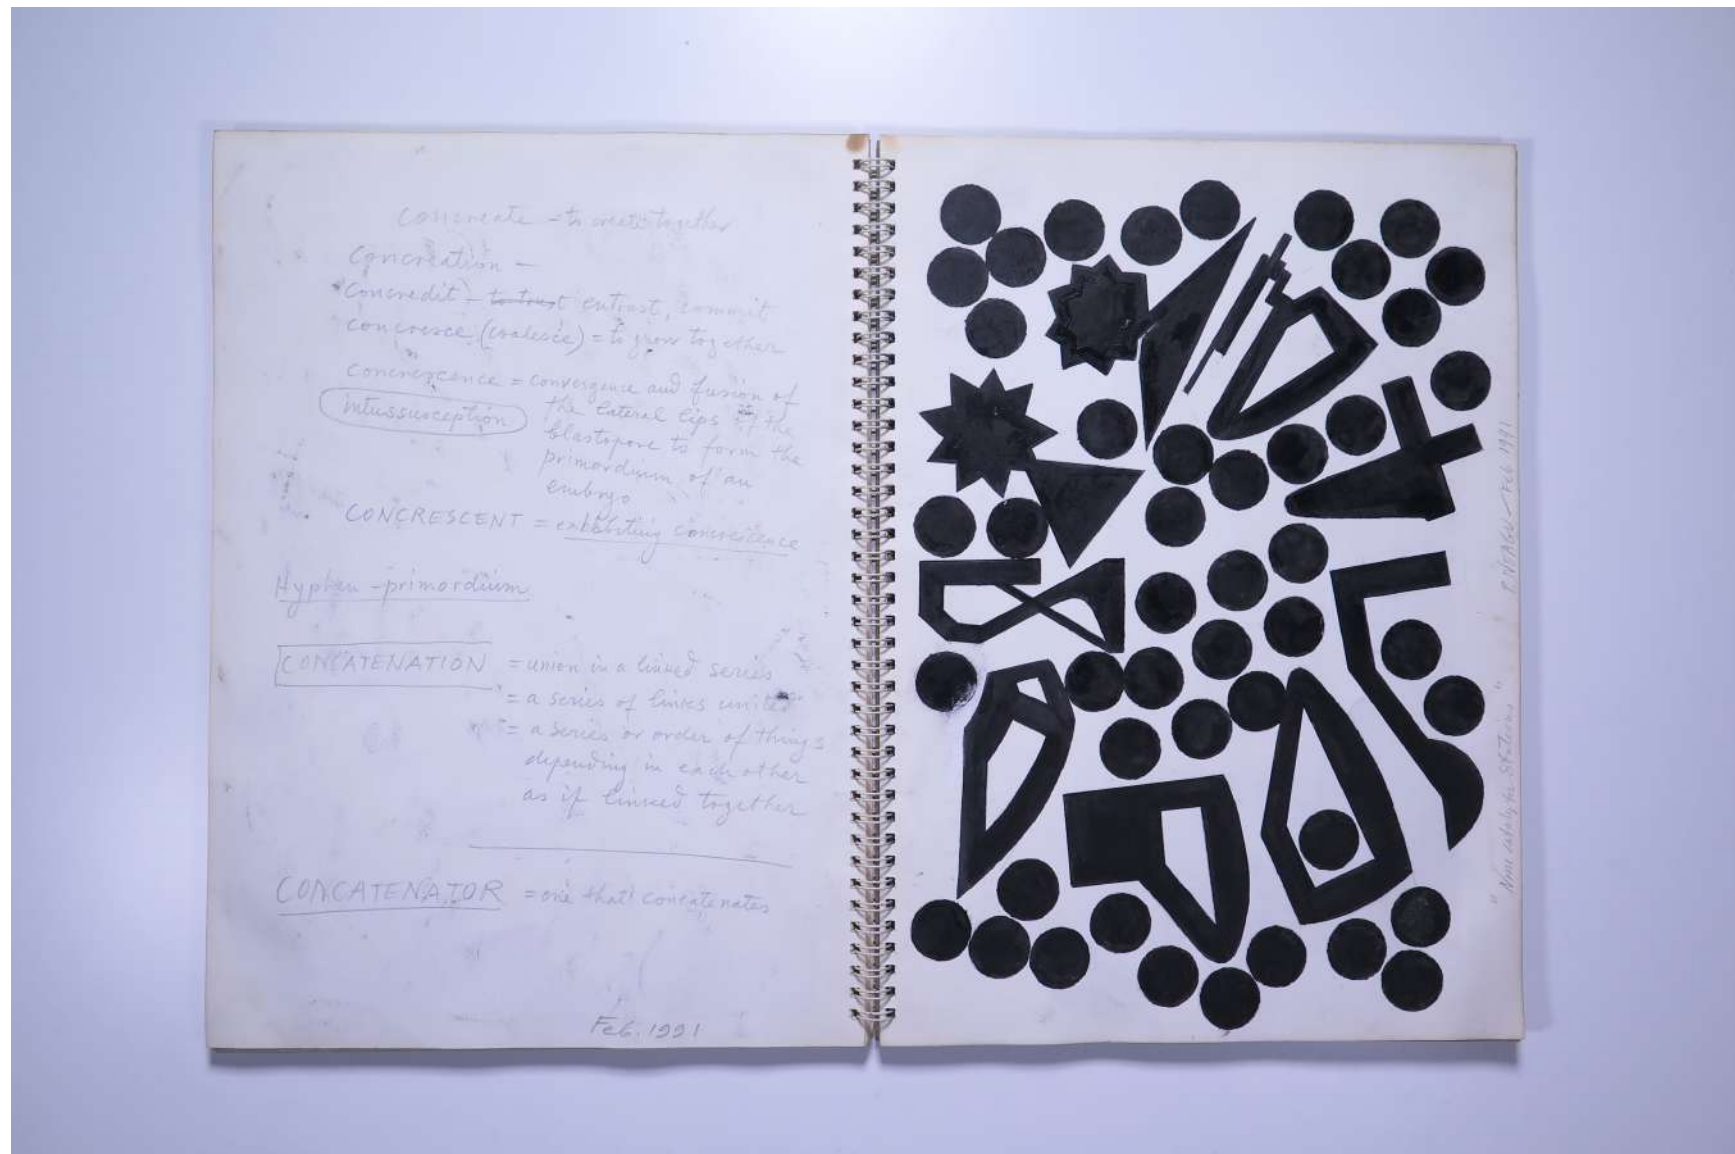 Concreate - to create together
Concreation -
Concredit - to trust entrust, commit
concresce (coalesce) = to grow together
concrescence = convergence and fusion of
intussusception
the lateral lips of the
blastopore to form the
primordium of an
embryo
CONCRESCENT = exhibiting concrescence
Hyphen - primordium
CONCATENATION = union in a linked series
= a series of links united
= a series or order of things
depending in each other
as if linked together
CONCATENATOR = one that concatenates
Feb. 1991
Feb 1991